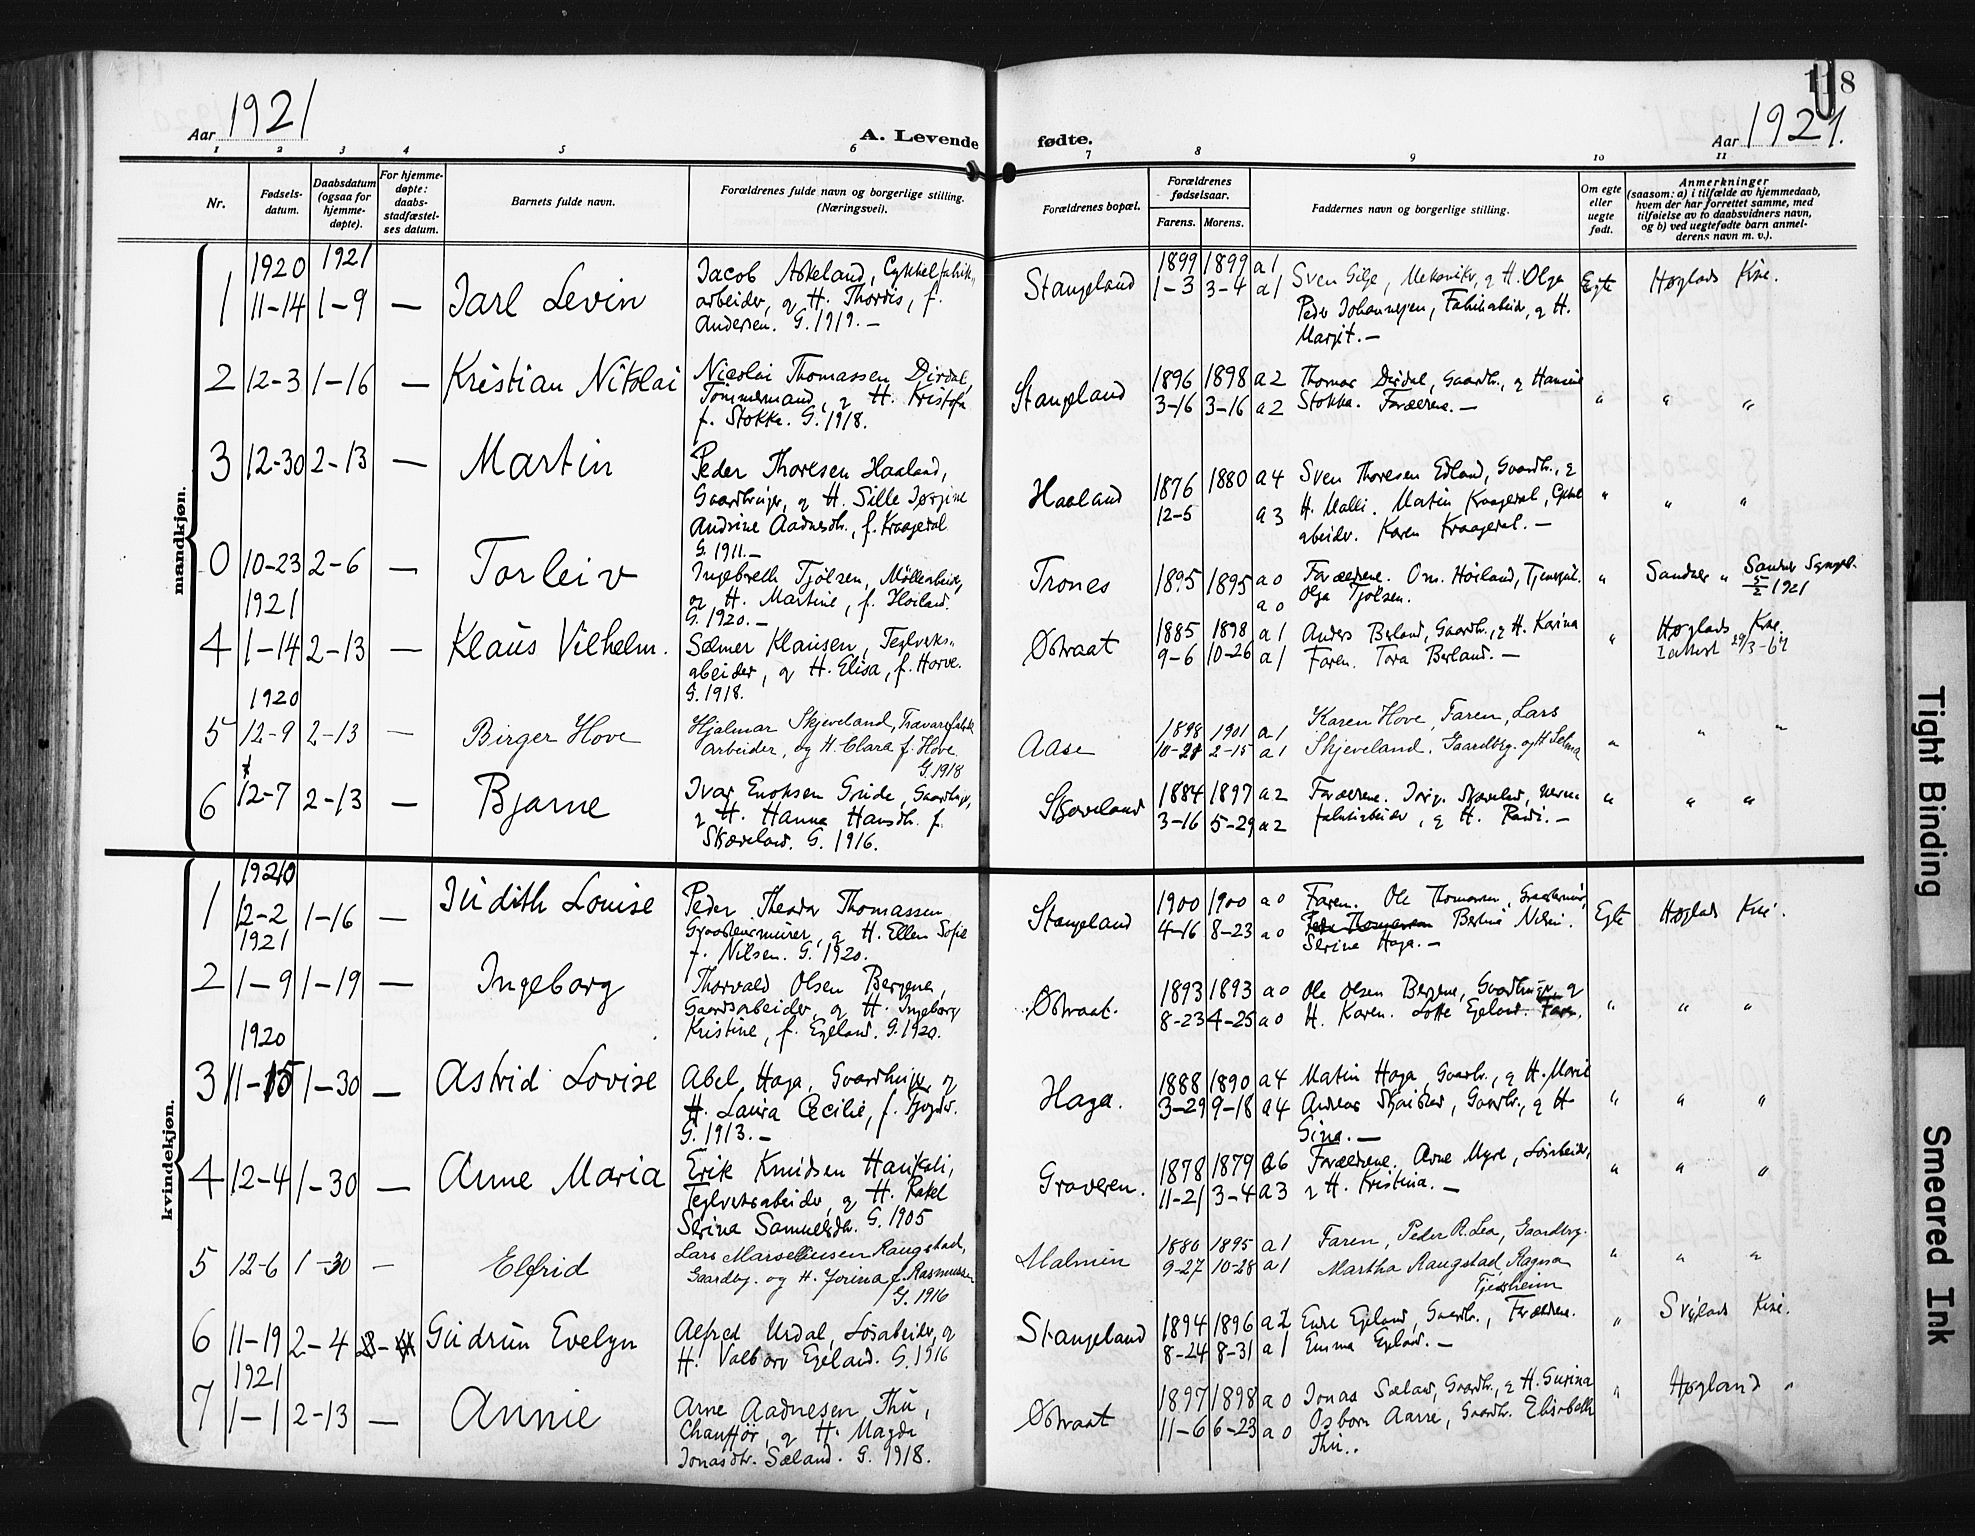 118
Aar 1921
A. Levende fødte.
Aar 1921.
1 2 3 4 5 6 7 8 9 10 11
Nr.
Fødsels-
datum.
Daabsdatum
(ogsaa for
hjemme-
døpte).
For hjemme-
døpte:
daabs-
stadfæstel-
ses datum.
Barnets fulde navn.
Forældrenes fulde navn og borgerlige stilling.
(Næringsvei).
Forældrenes bopæl.
Forældrenes
fødselsaar.
Farens. Morens.
Faddernes navn og borgerlige stilling.
Om egte
eller
uegte
født.
Anmerkninger
(saasom: a) i tilfælde av hjemmedaab,
hvem der har forrettet samme, med
tilføielse av to daabsvidners navn,
og b) ved uegtefødte barn anmel-
derens navn m. v.).
mandkjøn.
1920 1921
1 11-14 1-9 — Jarl Levin
Jacob Askeland, Cykkelfabrik-
arbeider, og H. Thordis, f.
Andersen. G. 1919. —
Stangeland
1899 1899 a1
1-3 3-4 a1
Sven Gilje, Mekaniker, og H. Olga
Peder Johannesen, Fabrikabeider, og H.
Margit. —
Egte Høglands Kirke.
2 12-3 1-16 — Kristian Nikolai
Nicolai Thomassen Dirdal,
Tømmermand, og H. Kristofa
f. Stokka. G. 1918.
Stangeland
1896 1898 a2
3-16 3-16 a2
Thomas Dirdal, Gaardbr., og Hansine
Stokka. Forældrene. —
" " "
3 12-30 2-13 — Martin
Peder Thoresen Haaland,
Gaardbruger, og H. Sille Jørgine
Andrine Aadnesdtr., f. Kraagedal
G. 1911. —
Haaland
1876 1880 a4
12-5 a3
Sven Thoresen Edland, Gaardbr., og
H. Malli. Martin Kraagedal, Cykkel
abeider. Karen Kraagedal. —
" " "
0 10-23 2-6 — Torleiv
Ingebreth Tjølsen, Møllearbeider,
og H. Martine, f. Høiland.
G. 1920. —
Trones
1895 1895 a0
a0
Forældrene. Om. Høiland, Tjenestpi.
Olga Tjølsen.
" Sandnes " Sandnes Sognepr.
5/2 1921
1921
4 1-14 2-13 — Klaus Vilhelm.
Sælmer Klausen, Teglverks-
abeider, og H. Elisa, f. Horve.
G. 1918.
Østraat
1885 1898 a1
9-6 10-26 a1
Anders Berland, Gaardbr., og H. Karina
Faren. Tora Berland. —
" Høglands Kirke.
29/3-67
1920
5 12-9 2-13 — Birger Hove
Hjalmar Skjeveland, Travarefabrik
arbeider, og H. Clara f. Hove
G. 1918
Aase
1898 1901 a1
10-28 2-15 a1
Karen Hove, Faren, Lars
Skjeveland, Gaardbrg. og H. Selma
" " "
6 12-7 2-13 — Bjarne
Ivar Enoksen Grude, Gaardbruger,
og H. Hanna Hansdtr. f.
Skjæveland. G. 1916.
Skjæveland
1884 1897 a2
3-16 5-29 a2
Forældrene. Jørg. Skjæveland,
fabrikarbeider, og H. —
" " "
kvindekjøn.
1920
1 12-2 1-16 — Judith Louise
Peder Theodor Thomassen
Graastensmurer, og H. Ellen Sofie
f. Nilsen. G. 1920.
Stangeland
1900 1900 a0
4-16 8-23 a0
Faren. Ole Thomassen, Graastensmurer,
Peder Thomassen Bertine Nilsen.
Serina Haga. —
Egte Høglands Kirke.
1921
2 1-9 1-19 — Ingeborg
Thorvald Olsen Bergene,
Gaardsarbeider, og H. Ingeborg
Kristine, f. Egeland. G. 1920.
Østraat.
1893 1893 a0
8-23 4-25 a0
Ole Olsen Bergene, Gaardbruger, og
H. Karen. Lotte Egeland. Faren.
" " "
1920
3 11-15 1-30 — Astrid Lovise
Abel Haga, Gaardbruger, og
H. Laura Cecilie, f.
G. 1913. —
Haga.
1888 1890 a4
3-29 9-18 a4
Martin Haga, Gaardbr., og H. Marie
Andreas Gaardbr., og H
Gina. —
" " "
4 12-4 1-30 — Anne Maria
Erik Knudsen Haukali,
Teglverksabeider, og H. Rakel
Serina Samuelsdtr. G. 1905
Graveren.
1878 1879 a6
11-21 3-4 a3
Forældrene. Arne Myre, Løsarbeider,
og H. Kristina. —
" " "
5 12-6 1-30 — Elfrid
Lars Marselliussen Raugstad,
Gaardbrg. og H. Jorina f. Rasmussen
G. 1916
Malmin
1880 1895 a1
9-27 10-28 a1
Faren, Peder R. Lea, Gaardbrg.
Martha Raugstad, Ragna
Tjessheim
" " "
6 11-19 2-4 Gudrun Evelyn
Alfred Urdal, Løsabeider, og
H. Valborg Egeland. G. 1916
Stangeland
1894 1896 a2
8-24 8-31 a1
Endre Egeland, Gaardbr., Forældrene.
Emma Egeland. —
" Kirke.
1921
7 1-1 2-13 — Annie
Arne Aadnesen Thu,
Chauffør, og H. Magda
Jonasdtr. Sæland. G. 1918.
Østraat
1897 1898 a0
11-6 6-23 a0
Jonas Sæland, Gaardbr., og H. Gurina
Osborn Aarre, Gaardbr. Elisabeth
Thu..
" Høgland "
Tight Binding
Smeared Ink